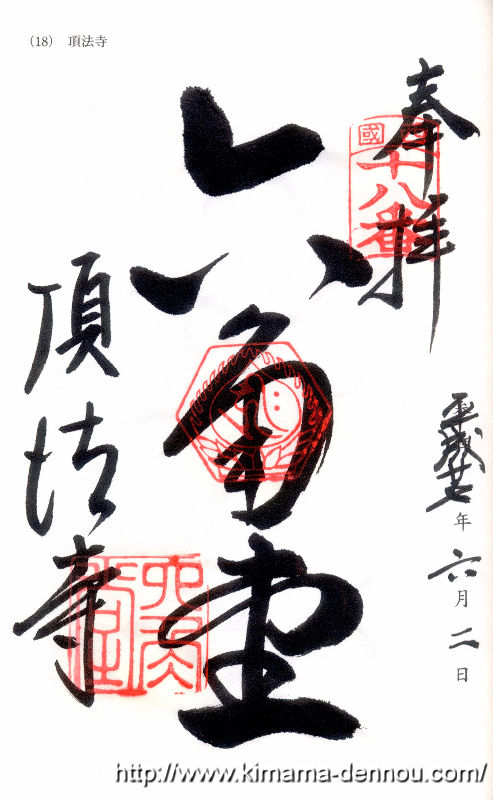 (18) 頂法寺
奉拝
國
十八番
六角堂
頂法寺
平成廿七年六月二日
http://www.kimama-dennou.com/